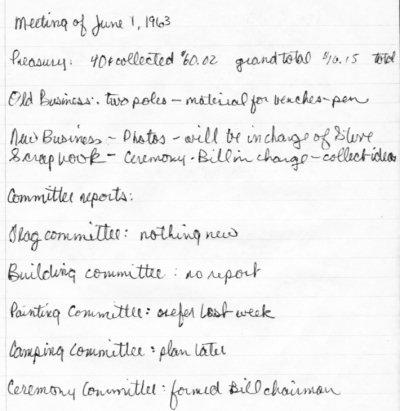 Meeting of June 1, 1963
Treasury: 40¢ collected $60.02 grand total $10.15 total
Old Business: two poles - material for benches - pen
New Business - Photos - will be in charge of Steve
Scrapbook - Ceremony - Bill in charge - collect ideas
Committee reports:
Flag committee: nothing new
Building committee: no report
Painting Committee: last week
Camping Committee: plan later
Ceremony Committee: formed Bill chairman